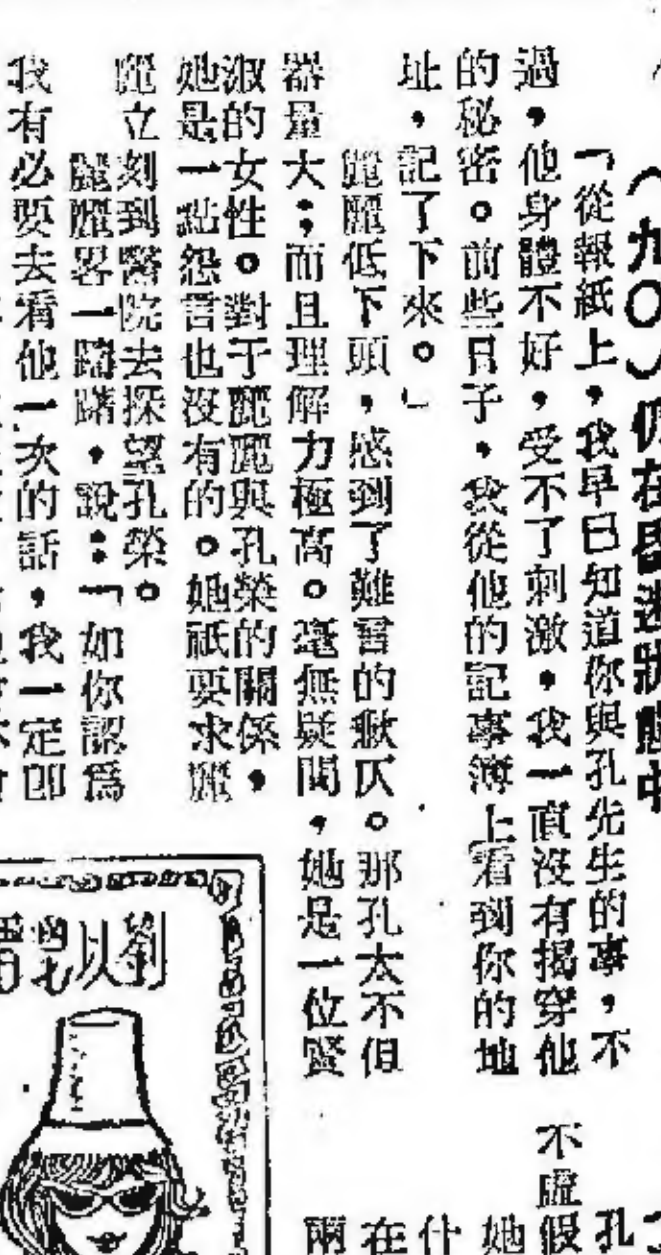 （九〇）仍在昏迷狀態中
「從報紙上，我早已知道你與孔先生的事，不
過，他身體不好，受不了刺激，我一直沒有揭穿他
的秘密。前些日子，我從他的記事簿上看到你的地
址，記了下來。」
麗麗低下頭，感到了難言的歉仄。那孔太不但
器量大；而且理解力極高。毫無疑問，她是一位賢
淑的女性。對于麗麗與孔榮的關係，
她是一點怨言也沒有的。她祇要求麗
麗立刻到醫院去探望孔榮。
麗麗畧一躊躇，說：「如你認爲
我有必要去看他一次的話，我一定卽
劉以鬯
不虛假
她
什
在
兩